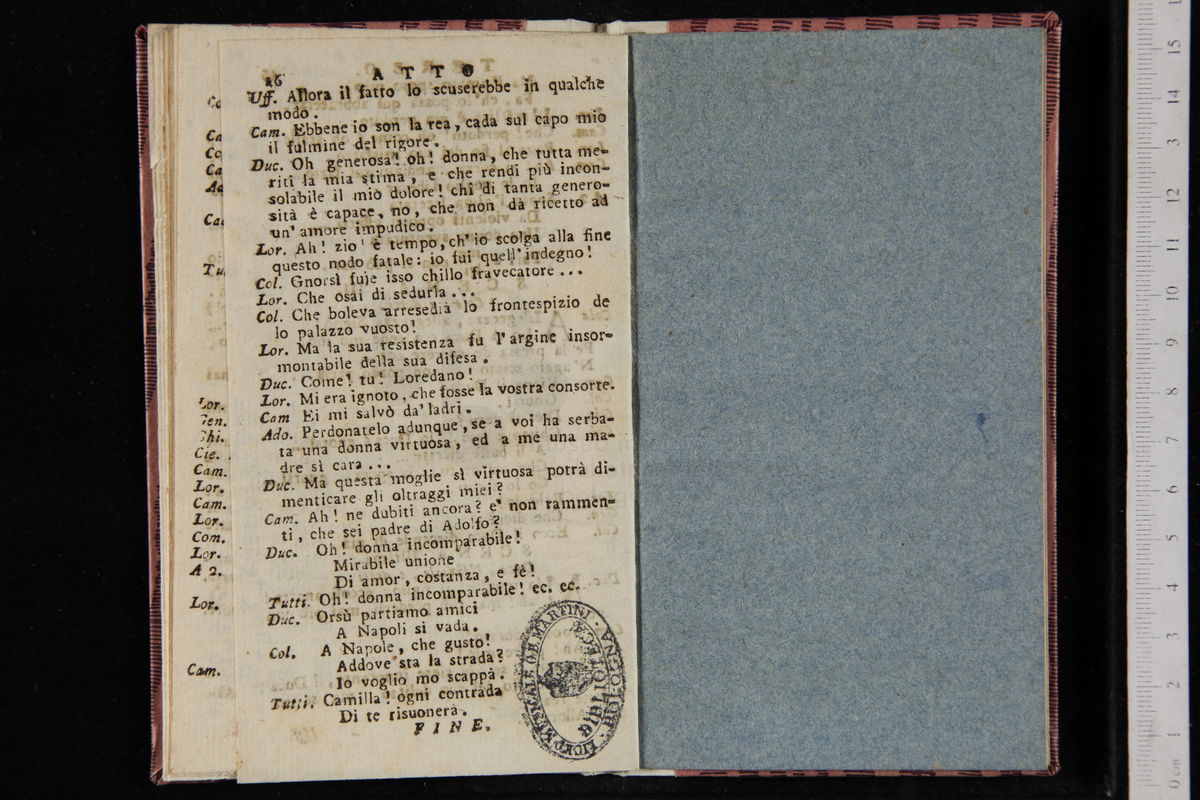 Co
Ca
Co
Ca
Ad
Cam
Tu
Lor.
Gen.
Chi.
Cie.
Cam.
Lor.
Cam.
Lor.
Com.
Lor.
A 2.
Lor.
Cam.
46 ATTO
Uff. Allora il fatto lo scuserebbe in qualche
modo.
Cam. Ebbene io son la rea, cada sul capo mio
il fulmine del rigore.
Duc. Oh generosa! oh! donna, che tutta me-
riti la mia stima, e che rendi più incon-
solabile il mio dolore! chi di tanta genero-
sità è capace, no, che non dà ricetto ad
un' amore impudico.
Lor. Ah! zio! è tempo, ch' io scolga alla fine
questo nodo fatale: io fui quell' indegno!
Col. Gnorsì fuje isso chillo fravecatore ...
Lor. Che osai di sedurla ...
Col. Che boleva arresedià lo frontespizio de
lo palazzo vuosto!
Lor. Ma la sua resistenza fu l' argine insor-
montabile della sua difesa.
Duc. Come! tu! Loredano!
Lor. Mi era ignoto, che fosse la vostra consorte.
Cam Ei mi salvò da' ladri.
Ado. Perdonatelo adunque, se a voi ha serba-
ta una donna virtuosa, ed a me una ma-
dre sì cara ...
Duc. Ma questa moglie sì virtuosa potrà di-
menticare gli oltraggi miei?
Cam. Ah! ne dubiti ancora? e' non rammen-
ti, che sei padre di Adolfo?
Duc. Oh! donna incomparabile!
Mirabile unione
Di amor, costanza, e fè!
Tutti. Oh! donna incomparabile! ec. ec.
Duc. Orsù partiamo amici
A Napoli si vada.
Col. A Napole, che gusto!
Addove sta la strada?
Io voglio mo scappà.
Tutti. Camilla! ogni contrada
Di te risuonerà.
FINE.
LICEO MUSICALE G.B. MARTINI · BOLOGNA
BIBLIOTECA